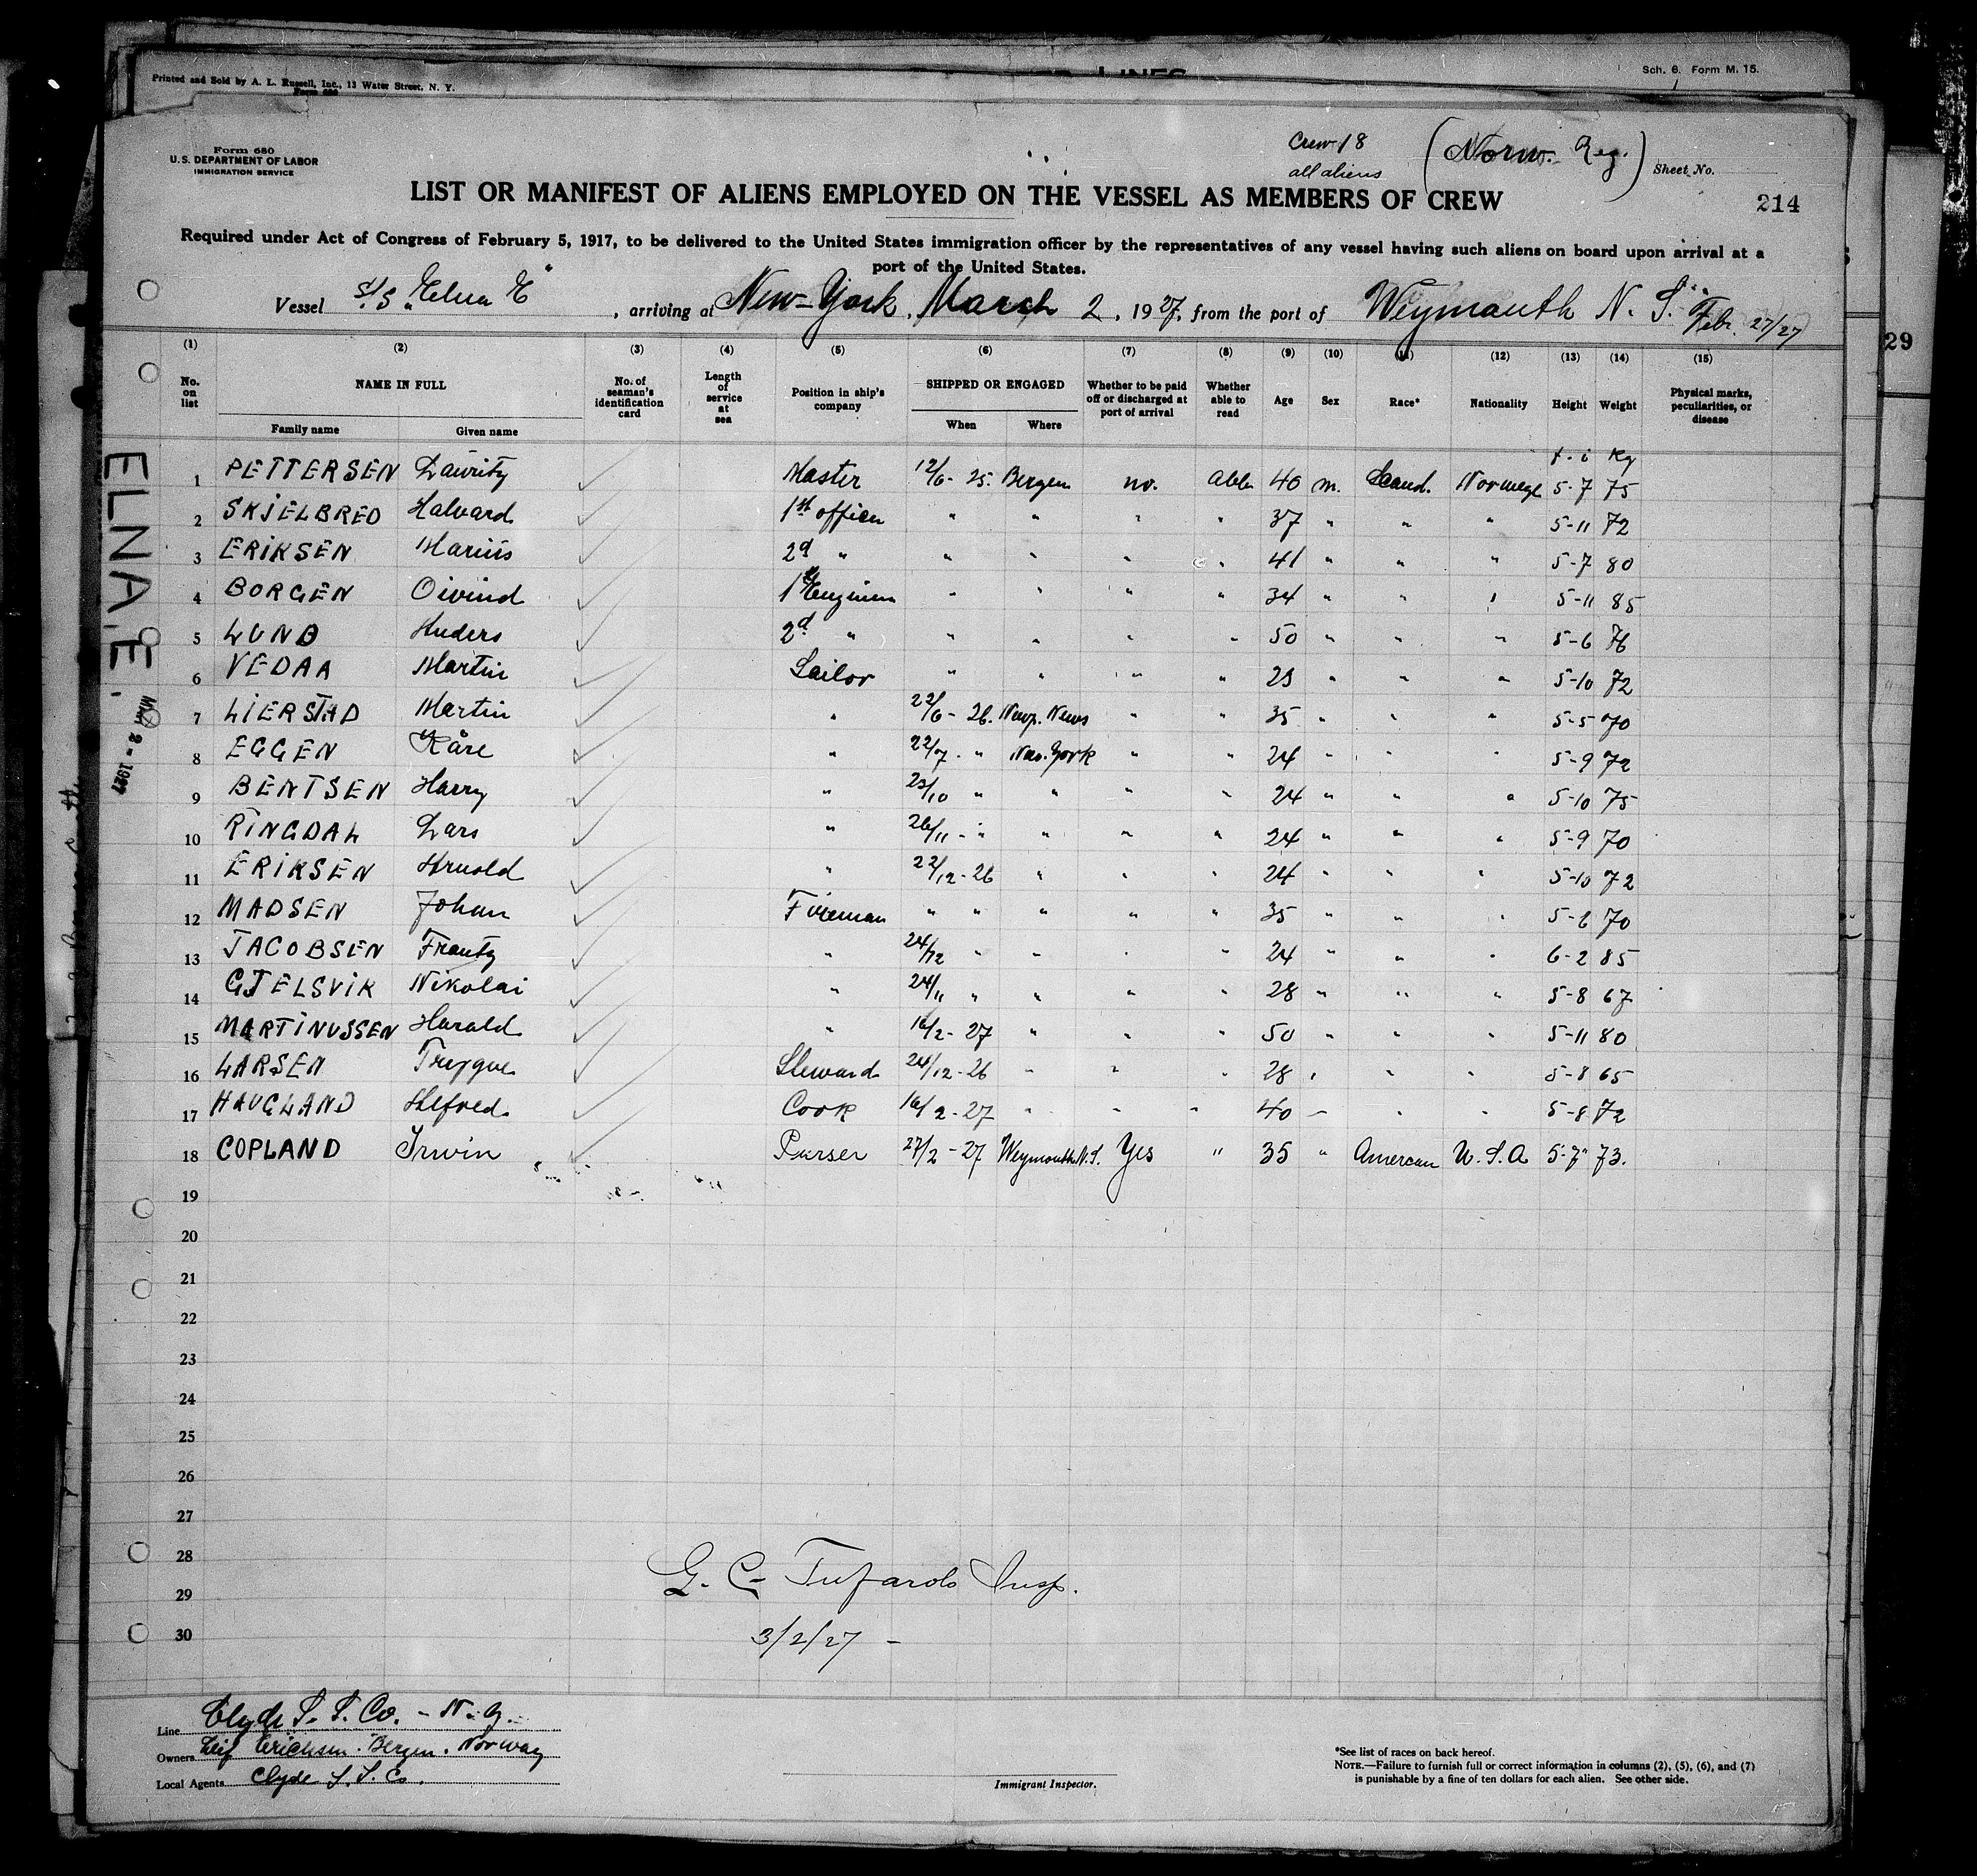 Printed and Sold by A. L. Russell, Inc., 13 Water Street, N. Y.
Sch. 6. Form M. 15.
Form 680
U.S. DEPARTMENT OF LABOR
IMMIGRATION SERVICE
Crew 18
all aliens
(Norw. Reg.)
Sheet No.
LIST OR MANIFEST OF ALIENS EMPLOYED ON THE VESSEL AS MEMBERS OF CREW
214
Required under Act of Congress of February 5, 1917, to be delivered to the United States immigration officer by the representatives of any vessel having such aliens on board upon arrival at a
port of the United States.
Vessel S/S "Elna E" , arriving at New-York, March 2, 1927, from the port of Weymouth N. S. Febr. 27/27
29
(1) (2) (3) (4) (5) (6) (7) (8) (9) (10) (11) (12) (13) (14) (15)
No. on list NAME IN FULL No. of seaman's identification card Length of service at sea Position in ship's company SHIPPED OR ENGAGED Whether to be paid off or discharged at port of arrival Whether able to read Age Sex Race* Nationality Height Weight Physical marks, peculiarities, or disease
Family name Given name When Where
f - i Kg
1 PETTERSEN Lauritz Master 12/6 - 25. Bergen no. able 40 m. Scand. Norwege 5-7 75
2 SKJELBRED Halvard 1st officer " " " " 37 " " " 5-11 72
3 ERIKSEN Marius 2d " " " " " 41 " " " 5-7 80
4 BORGEN Oivind 1st Engineer " " " " 34 " " " 5-11 85
5 LUND Anders 2d " " " " " 50 " " " 5-6 76
6 VEDAA Martin Sailor " " " " 23 " " " 5-10 72
7 LIERSTAD Martin " 22/6 - 26. Newp. News " " 35 " " " 5-5 70
8 EGGEN Kåre " 22/7 - " New. York " " 24 " " " 5-9 72
9 BENTSEN Harry " 23/10 " " " " 24 " " " 5-10 75
10 RINGDAL Lars " 26/11 - " " " " 24 " " " 5-9 70
11 ERIKSEN Arnold " 22/12 - 26 " " " 24 " " " 5-10 72
12 MADSEN Johan Fireman " " " " " 35 " " " 5-6 70
13 JACOBSEN Frantz " 24/12 " " " " 24 " " " 6-2 85
14 GJELSVIK Nikolai " 24/11 " " " " 28 " " " 5-8 67
15 MARTINUSSEN Harald " 16/2 - 27 " " " 50 " " " 5-11 80
16 LARSEN Trygve Steward 24/12 - 26 " " " 28 " " " 5-8 65
17 HAUGLAND Alfred Cook 16/2 - 27 " " " 40 " " " 5-8 72
18 COPLAND Irwin Purser 27/2 - 27 Weymouth N.S. Yes " 35 " American U.S.A 5-7 73.
19
20
21
22
23
24
25
26
27
28
29
30
ELNA, E.
MAR 2 - 1927
G. C. Tufarolo Insp.
3/2/27 -
Line Clyde S. S. Co. - N. Y.
Owners Leif Erichsen. Bergen. Norway
Local Agents Clyde S. S. Co.
Immigrant Inspector.
*See list of races on back hereof.
NOTE.—Failure to furnish full or correct information in columns (2), (5), (6), and (7)
is punishable by a fine of ten dollars for each alien. See other side.